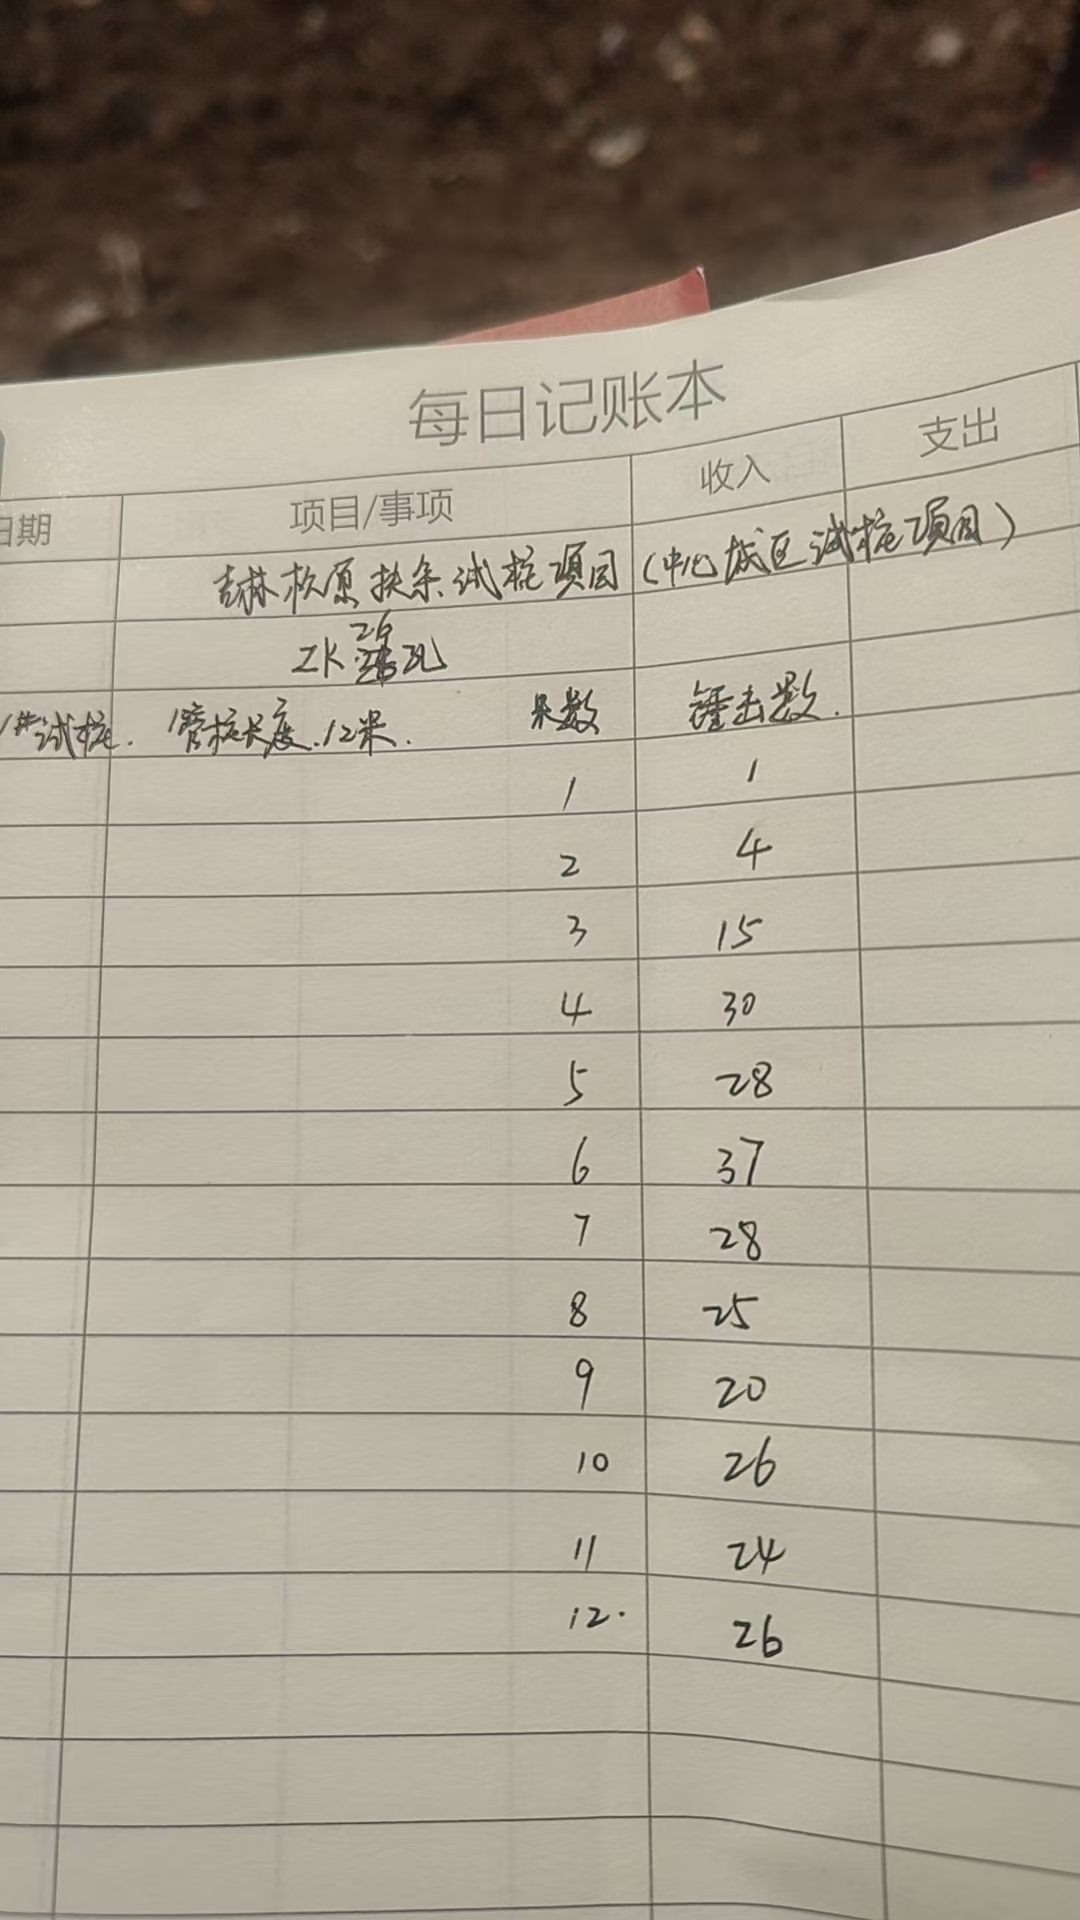 每日记账本
日期 项目/事项 收入 支出
吉林松原扶余试桩项目(中心城区试桩项目)
ZK 26 孔
1#试桩. 管桩长度.12米. 米数 锤击数.
1 1
2 4
3 15
4 30
5 28
6 37
7 28
8 25
9 20
10 26
11 24
12. 26